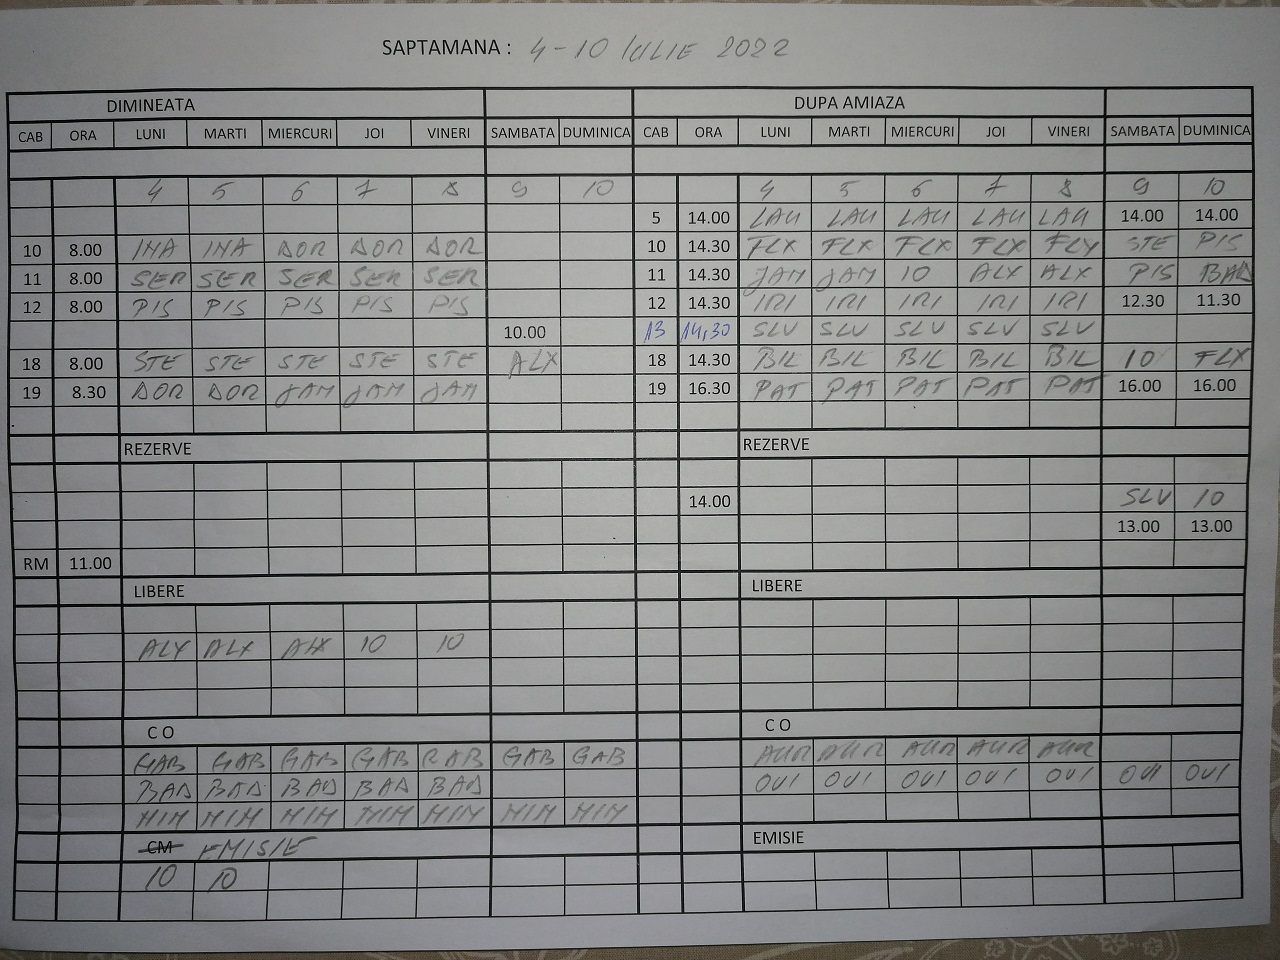 SAPTAMANA : 4 - 10 IULIE 2022
DIMINEATA DUPA AMIAZA
CAB ORA LUNI MARTI MIERCURI JOI VINERI SAMBATA DUMINICA CAB ORA LUNI MARTI MIERCURI JOI VINERI SAMBATA DUMINICA
4 5 6 7 8 9 10 4 5 6 7 8 9 10
5 14.00 LAU LAU LAU LAU LAU 14.00 14.00
10 8.00 INA INA DOR DOR DOR 10 14.30 FLX FLX FLX FLX FLX STE PIS
11 8.00 SER SER SER SER SER 11 14.30 JAM JAM 10 ALX ALX PIS BAD
12 8.00 PIS PIS PIS PIS PIS 12 14.30 IRI IRI IRI IRI IRI 12.30 11.30
10.00 13 14,30 SLV SLV SLV SLV SLV
18 8.00 STE STE STE STE STE ALX 18 14.30 BIL BIL BIL BIL BIL 10 FLX
19 8.30 DOR DOR JAM JAM JAM 19 16.30 PAT PAT PAT PAT PAT 16.00 16.00
REZERVE REZERVE
14.00 SLV 10
13.00 13.00
RM 11.00
LIBERE LIBERE
ALX ALX ALX 10 10
C O C O
GAB GAB GAB GAB GAB GAB GAB AUR AUR AUR AUR AUR
BAD BAD BAD BAD BAD OVI OVI OVI OVI OVI OVI OVI
MIM MIM MIM MIM MIM MIM MIM
CM EMISIE EMISIE
10 10